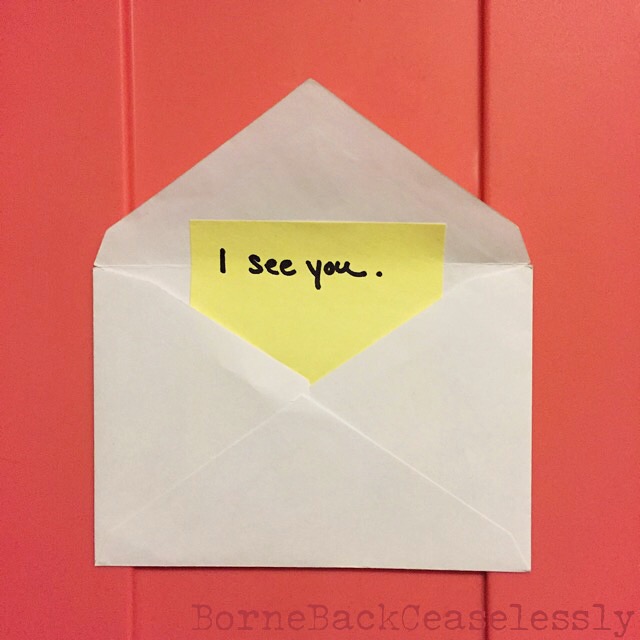 I see you.
BorneBackCeaselessly